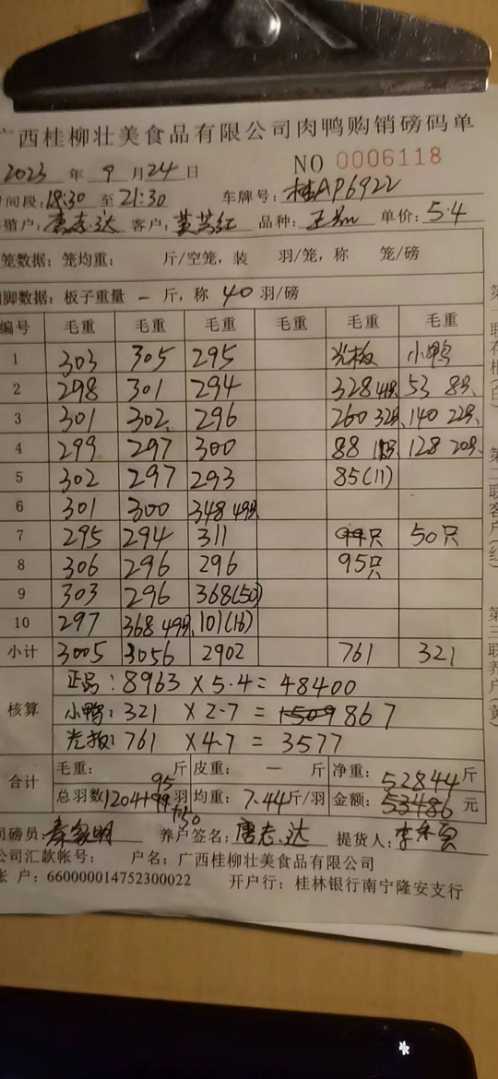 广西桂柳壮美食品有限公司肉鸭购销磅码单
2023 年 9 月 24 日 NO 0006118
时间段:18:30 至 21:30 车牌号: 桂AP6922
唐志达 客户: 黄其红 品种: 单价: 5.4
笼数据: 笼均重: 斤/空笼, 装 羽/笼, 称 笼/磅
脚数据: 板子重量 一 斤, 称 40 羽/磅
编号 毛重 毛重 毛重 毛重 毛重 毛重
1 303 305 295 光板 小鸭
2 298 301 294 328 41只 53 8只
3 301 302 296 260 32只 140 22只
4 299 297 300 88 11只 128 20只
5 302 297 293 85(11)
6 301 300 348 49只
7 295 294 311 只 50只
8 306 296 296 95只
9 303 296 368(50)
10 297 368 49只 101(16)
小计 3005 3056 2902 761 321
核算 正品: 8963 X 5.4 = 48400
小鸭: 321 X 2.7 = 867
光板: 761 X 4.7 = 3577
合计 毛重: 斤 皮重: 一 斤 净重: 52844 斤
总羽数 1204 95 羽 +50 均重: 7.44 斤/羽 金额: 53486 元
司磅员: 养户签名: 唐志达 提货人:
公司汇款帐号: 户名: 广西桂柳壮美食品有限公司
账 户: 660000014752300022 开户行: 桂林银行南宁隆安支行